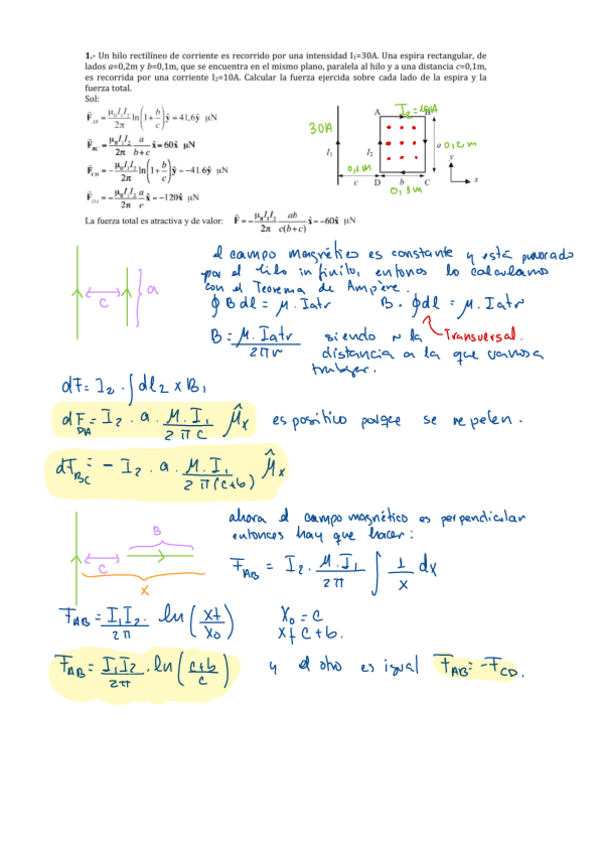 1.- Un hilo rectilíneo de corriente es recorrido por una intensidad I₁=30A. Una espira rectangular, de
lados a=0,2m y b=0,1m, que se encuentra en el mismo plano, paralela al hilo y a una distancia c=0,1m,
es recorrida por una corriente I₂=10A. Calcular la fuerza ejercida sobre cada lado de la espira y la
fuerza total.
Sol:
F⃗_AB = μ₀I₁I₂/2π ln(1+b/c) ŷ = 41,6ŷ μN
F⃗_BC = μ₀I₁I₂/2π a/(b+c) x̂ = 60x̂ μN
F⃗_CD = −μ₀I₁I₂/2π ln(1+b/c) ŷ = −41.6ŷ μN
F⃗_DA = −μ₀I₁I₂/2π a/c x̂ = −120x̂ μN
La fuerza total es atractiva y de valor: F⃗ = −μ₀I₁I₂/2π ab/c(b+c) x̂ = −60x̂ μN
30A
I₁
I₂
A
B
a 0,2m
0,1m
c D b C
0,1m
y
x
el campo magnético es constante y está provocado
por el hilo infinito, entonces lo calculamos
con el Teorema de Ampère.
∮ B dl = μ. Iatr B. ∮dl = μ. Iatr
Transversal.
B = μ. Iatr / 2πr siendo r la
distancia a la que vamos a
trabajar.
c
a
dF = I₂ . ∫dl₂ × B₁
dF_DA = I₂ . a . μ. I₁ / 2πc û_x es positivo porque se repelen.
dF_BC = − I₂ . a . μ. I₁ / 2π(c+b) û_x
ahora el campo magnético es perpendicular
entonces hay que hacer:
B
c
x
F_AB = I₂ . μ. I₁ / 2π ∫ 1/x dx
F_AB = I₁ I₂ . / 2π ln (xf / x₀) x₀ = c
xf c+b.
F_AB = I₁ I₂ / 2π . ln (c+b / c) y el otro es igual F_AB = −F_CD.